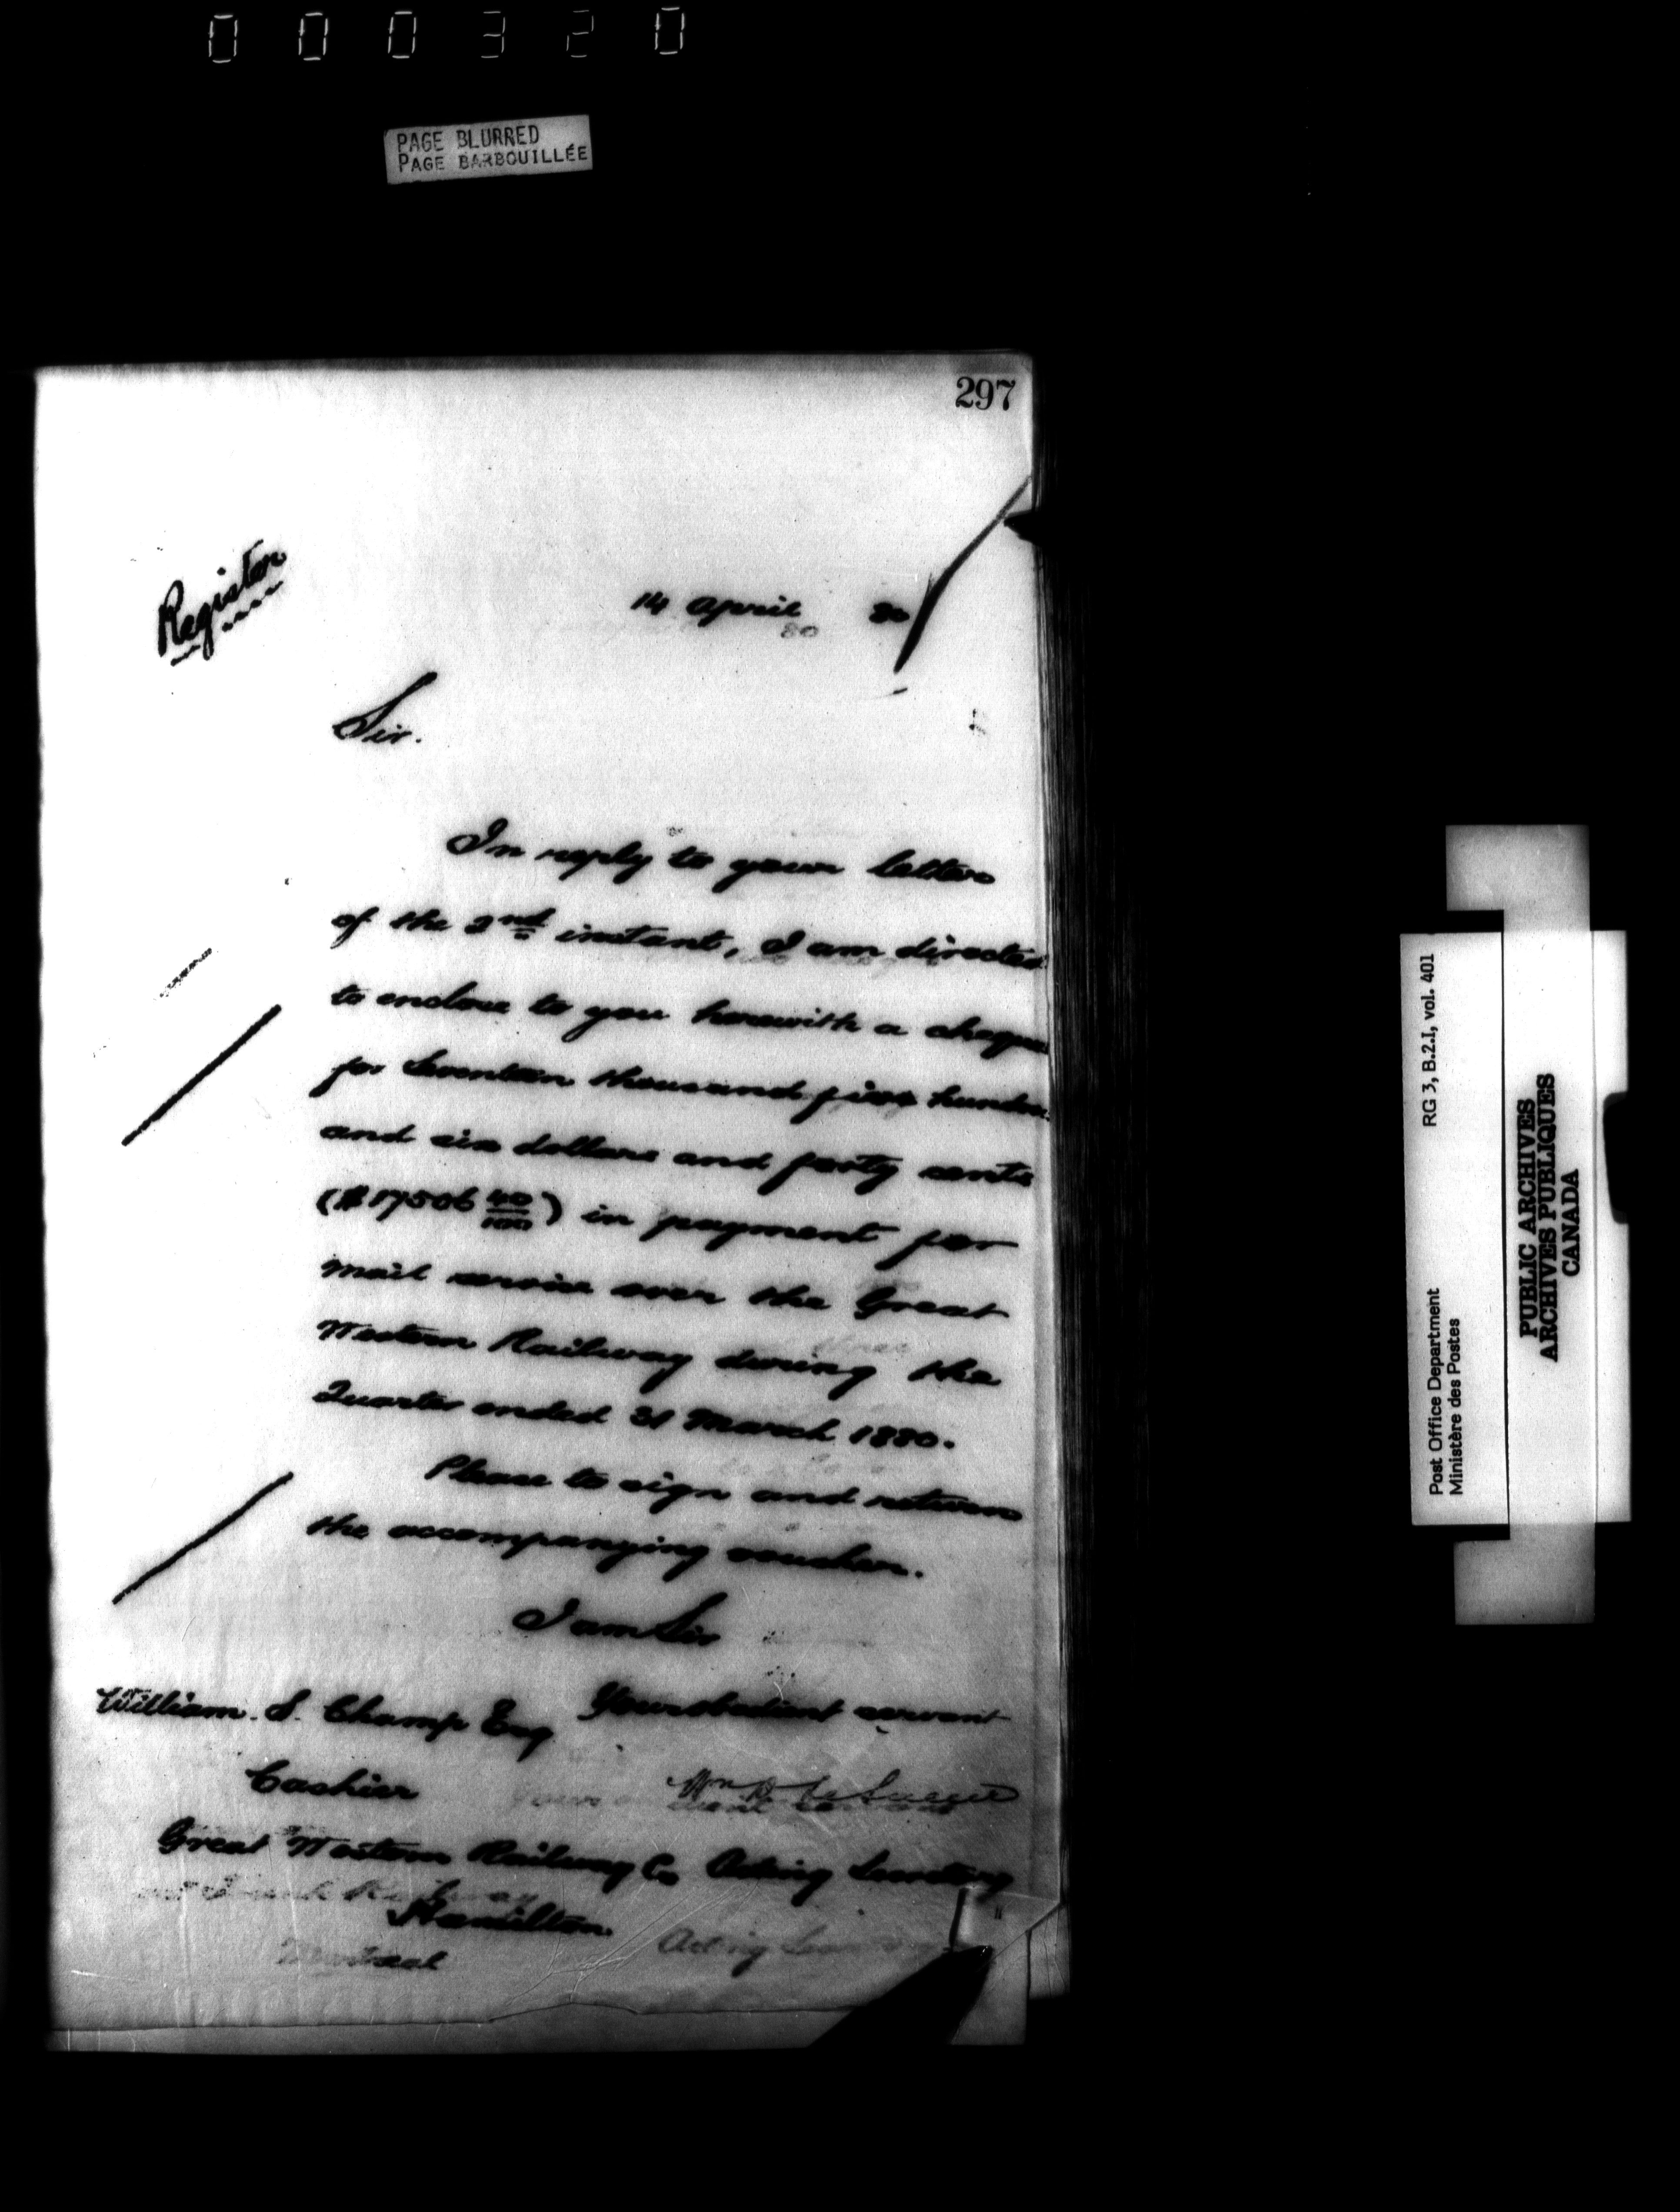 000320
PAGE BLURRED
PAGE BARBOUILLÉE
297
Register
14 April 80
80
Sir.
In reply to your letter
of the 2nd instant, I am directed
to enclose to you herewith a cheque
for Seventeen thousand five hundre
and six dollars and forty cents
($17506 40/100) in payment for
mail service over the Great
Western Railway during the
Quarter ended 31 March 1880.
Please to sign and return
the accompanying voucher.
I am Sir
Your obedient servant
William. S. Champ Esq
Cashier
Wm D LeSueur
Great Western Railway Co
Acting Secretary
Hamilton.
Railway
Montreal
Acting
RG 3, B.2.I, vol. 401
Post Office Department
Ministère des Postes
PUBLIC ARCHIVES
ARCHIVES PUBLIQUES
CANADA